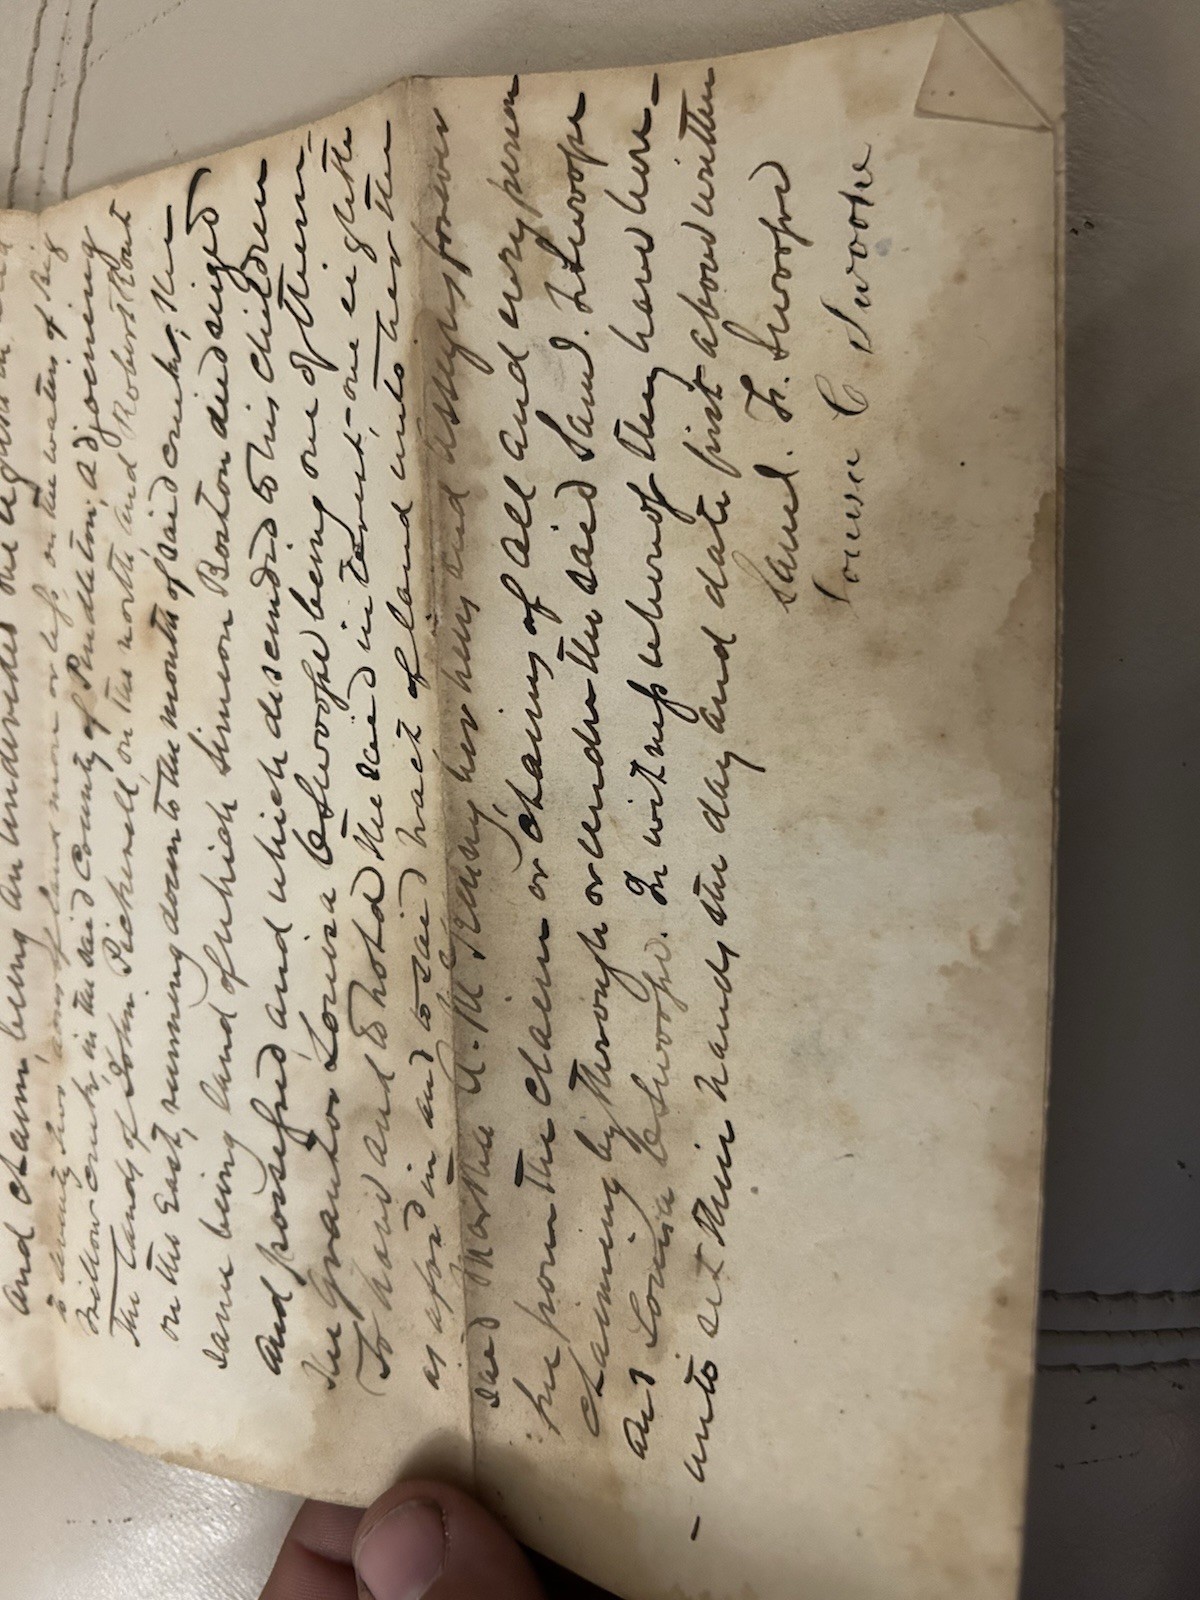 and claim, being an undivided one eighth in and
to seventy two acres of land more or less on the waters of Big
Willow creek, in the said County of Pendleton, adjoining
the lands of John Pickerell, on the north, and Robert
on the East, running down to the mouth of said creek, the
same being land of which Simeon Boston died seized
and possessed, and which descended to his children
the grantor Louisa C Swoope being one of them.
To have and to hold the said interest, one eighth
as afore'd in and to said tract of land unto her the
said Martha A. M. her heirs and assigns forever
free from the claim or claims of all and every person
claiming by through or under the said Saml. F. Swoope
and Louisa C Swoope. In witness whereof they have here-
-unto set their hands the day and date first above written
Saml. F. Swoope
Louisa C Swoope